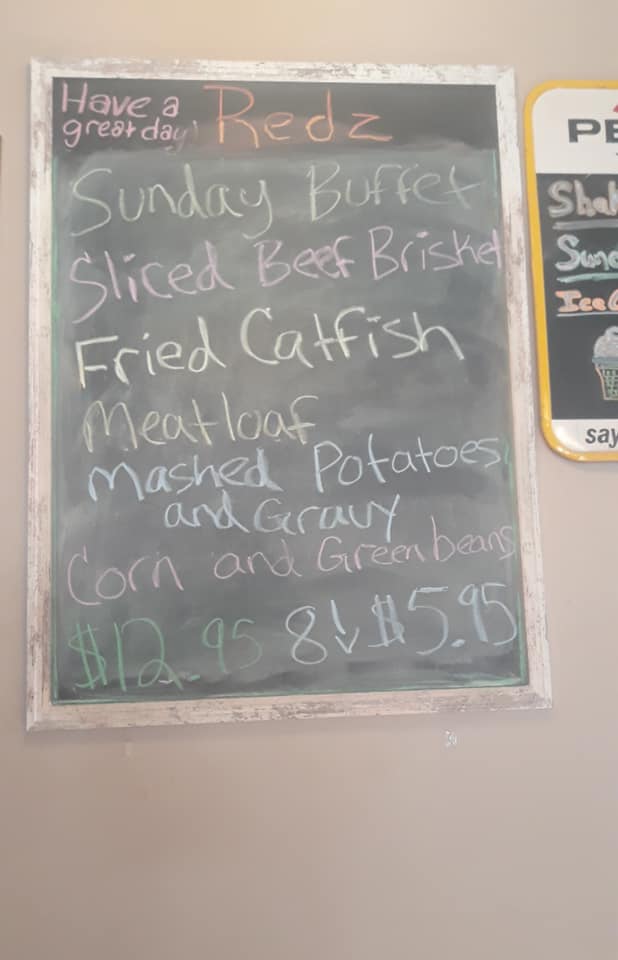 Have a
great day!
Redz
Sunday Buffet
Sliced Beef Brisket
Fried Catfish
Meatloaf
Mashed Potatoes
and Gravy
Corn and Green beans
$12.95 8↓ $5.95
Ice
say